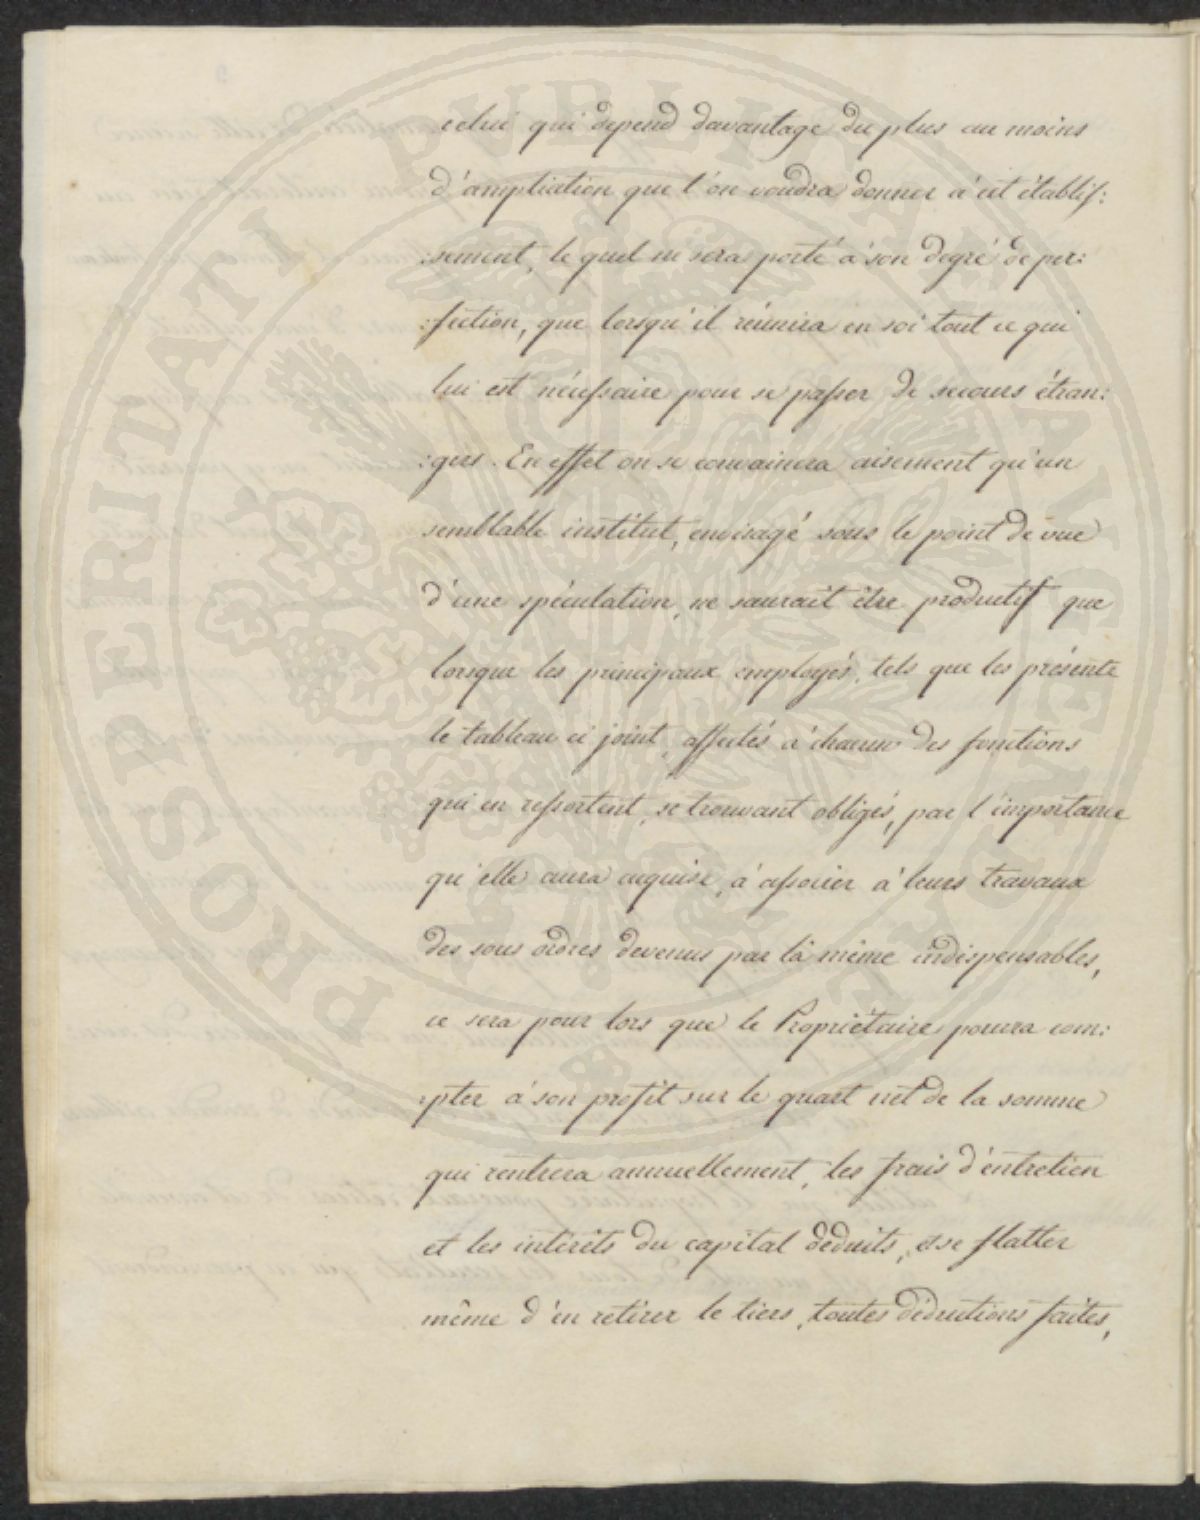 celui qui dépend davantage du plus au moins
d'ampliation que l'on voudra donner à cet établis:
:sement, le quel ne sera porté à son degré de per:
:fection, que lorsqu'il réunira en soi tout ce qui
lui est nécessaire pour se passer de secours étran:
:gers. En effet on se convaincra aisement qu'un
semblable institut, envisagé sous le point de vue
d'une spéculation, ne saurait être productif que
lorsque les principaux employés, tels que les présente
le tableau ci joint, affectés à chacun des fonctions
qui en ressortent, se trouvant obligés, par l'importance
qu'elle aura acquise, à associer à leurs travaux
des sous ordres devenus par là même indispensables,
ce sera pour lors que le Propriétaire pourra com:
:pter à son profit sur le quart net de la somme
qui rentrera annuellement, les frais d'entretien
et les intérêts du capital déduits, et se flatter
même d'en retirer le tiers, toutes déductions faites,
PROSPERITATI PVBLICAE AVGENDAE